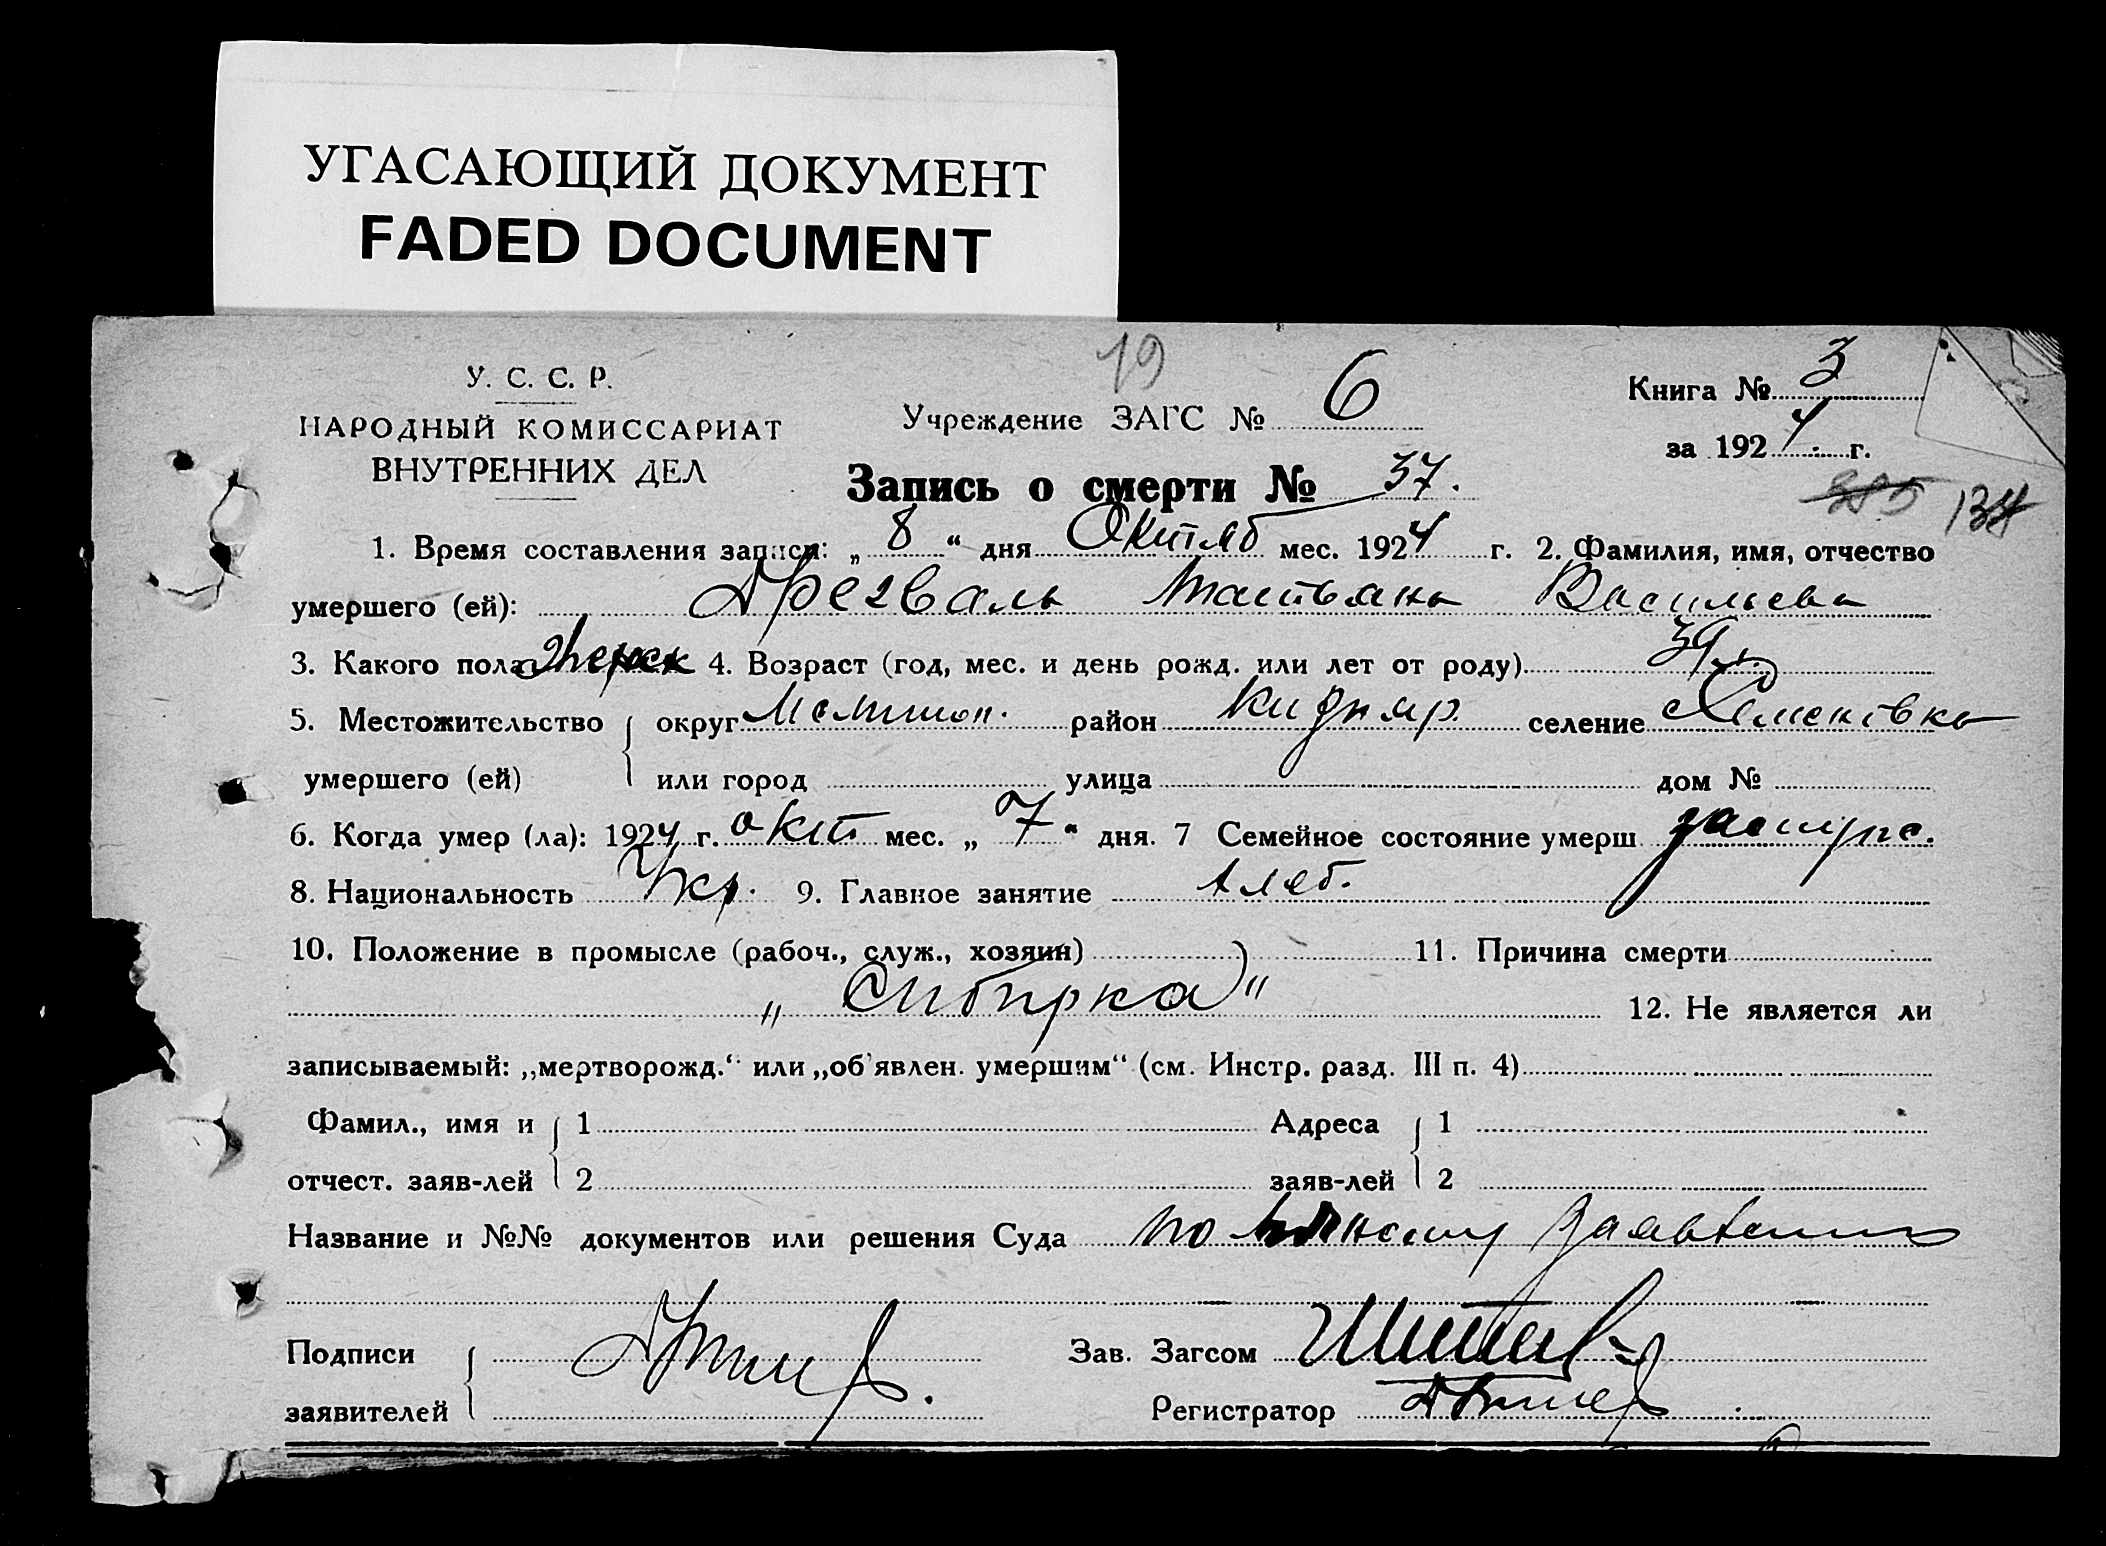 УГАСАЮЩИЙ ДОКУМЕНТ
FADED DOCUMENT
У. С. С. Р.
НАРОДНЫЙ КОМИССАРИАТ
ВНУТРЕННИХ ДЕЛ
19
Учреждение ЗАГС № 6
Книга № 3
за 1924 г.
Запись о смерти № 37.
1. Время составления записи: „ 8 “ дня Октяб мес. 1924 г. 2. Фамилия, имя, отчество
умершего (ей): Дрезваль Татьяна Васильева
3. Какого пола Женск 4. Возраст (год, мес. и день рожд. или лет от роду) 39
5. Местожительство округ район селение Семеновка
умершего (ей) или город улица дом №
6. Когда умер (ла): 1924 г. окт мес. „ 7 “ дня. 7 Семейное состояние умерш
8. Национальность Укр. 9. Главное занятие хлеб.
10. Положение в промысле (рабоч., служ., хозяин) 11. Причина смерти
„ Сибирка “ 12. Не является ли
записываемый: „мертворожд.“ или „об'явлен. умершим“ (см. Инстр. разд. III п. 4)
Фамил., имя и 1 Адреса 1
отчест. заяв-лей 2 заяв-лей 2
Название и №№ документов или решения Суда по заявлению
Подписи Зав. Загсом
заявителей Регистратор